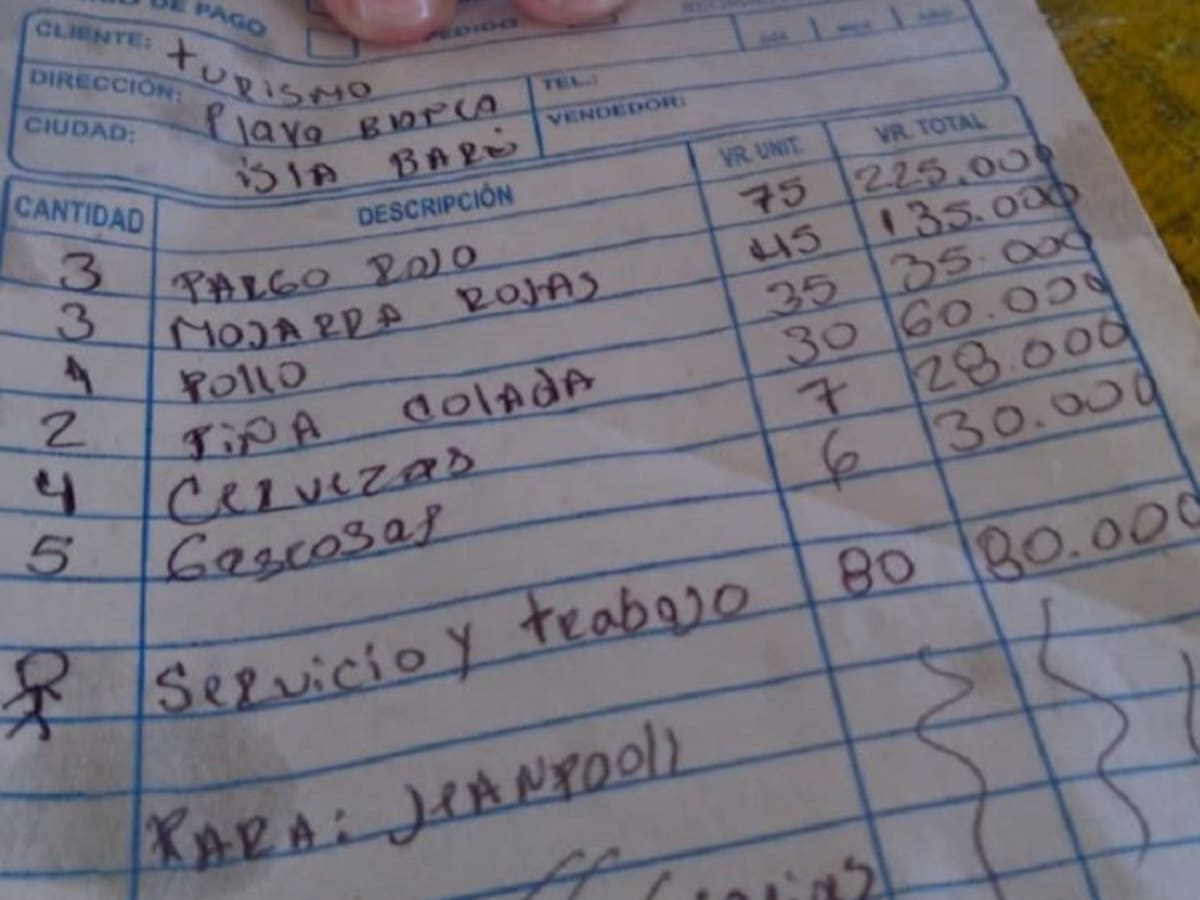 DE PAGO
PEDIDO
CLIENTE: turismo
DIRECCIÓN: Playa BLANCA
TEL.:
CIUDAD: iSLA BARÚ
VENDEDOR:
CANTIDAD DESCRIPCIÓN VR. UNIT. VR. TOTAL
3 PARGO ROJO 75 225.000
3 MOJARRA ROJAS 45 135.000
1 POLLO 35 35.000
2 PIÑA COLADA 30 60.000
4 CERVEZAS 7 28.000
5 Gascosas 6 30.000
Servicio y trabajo 80 80.000
PARA: